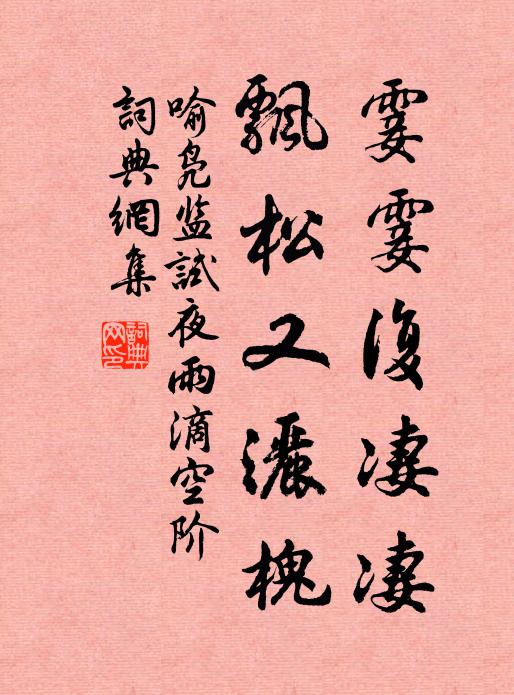 霎霎復凄凄
飄松又灑槐
喻凫监試夜雨滴空阶
詞典網集
詞典网印